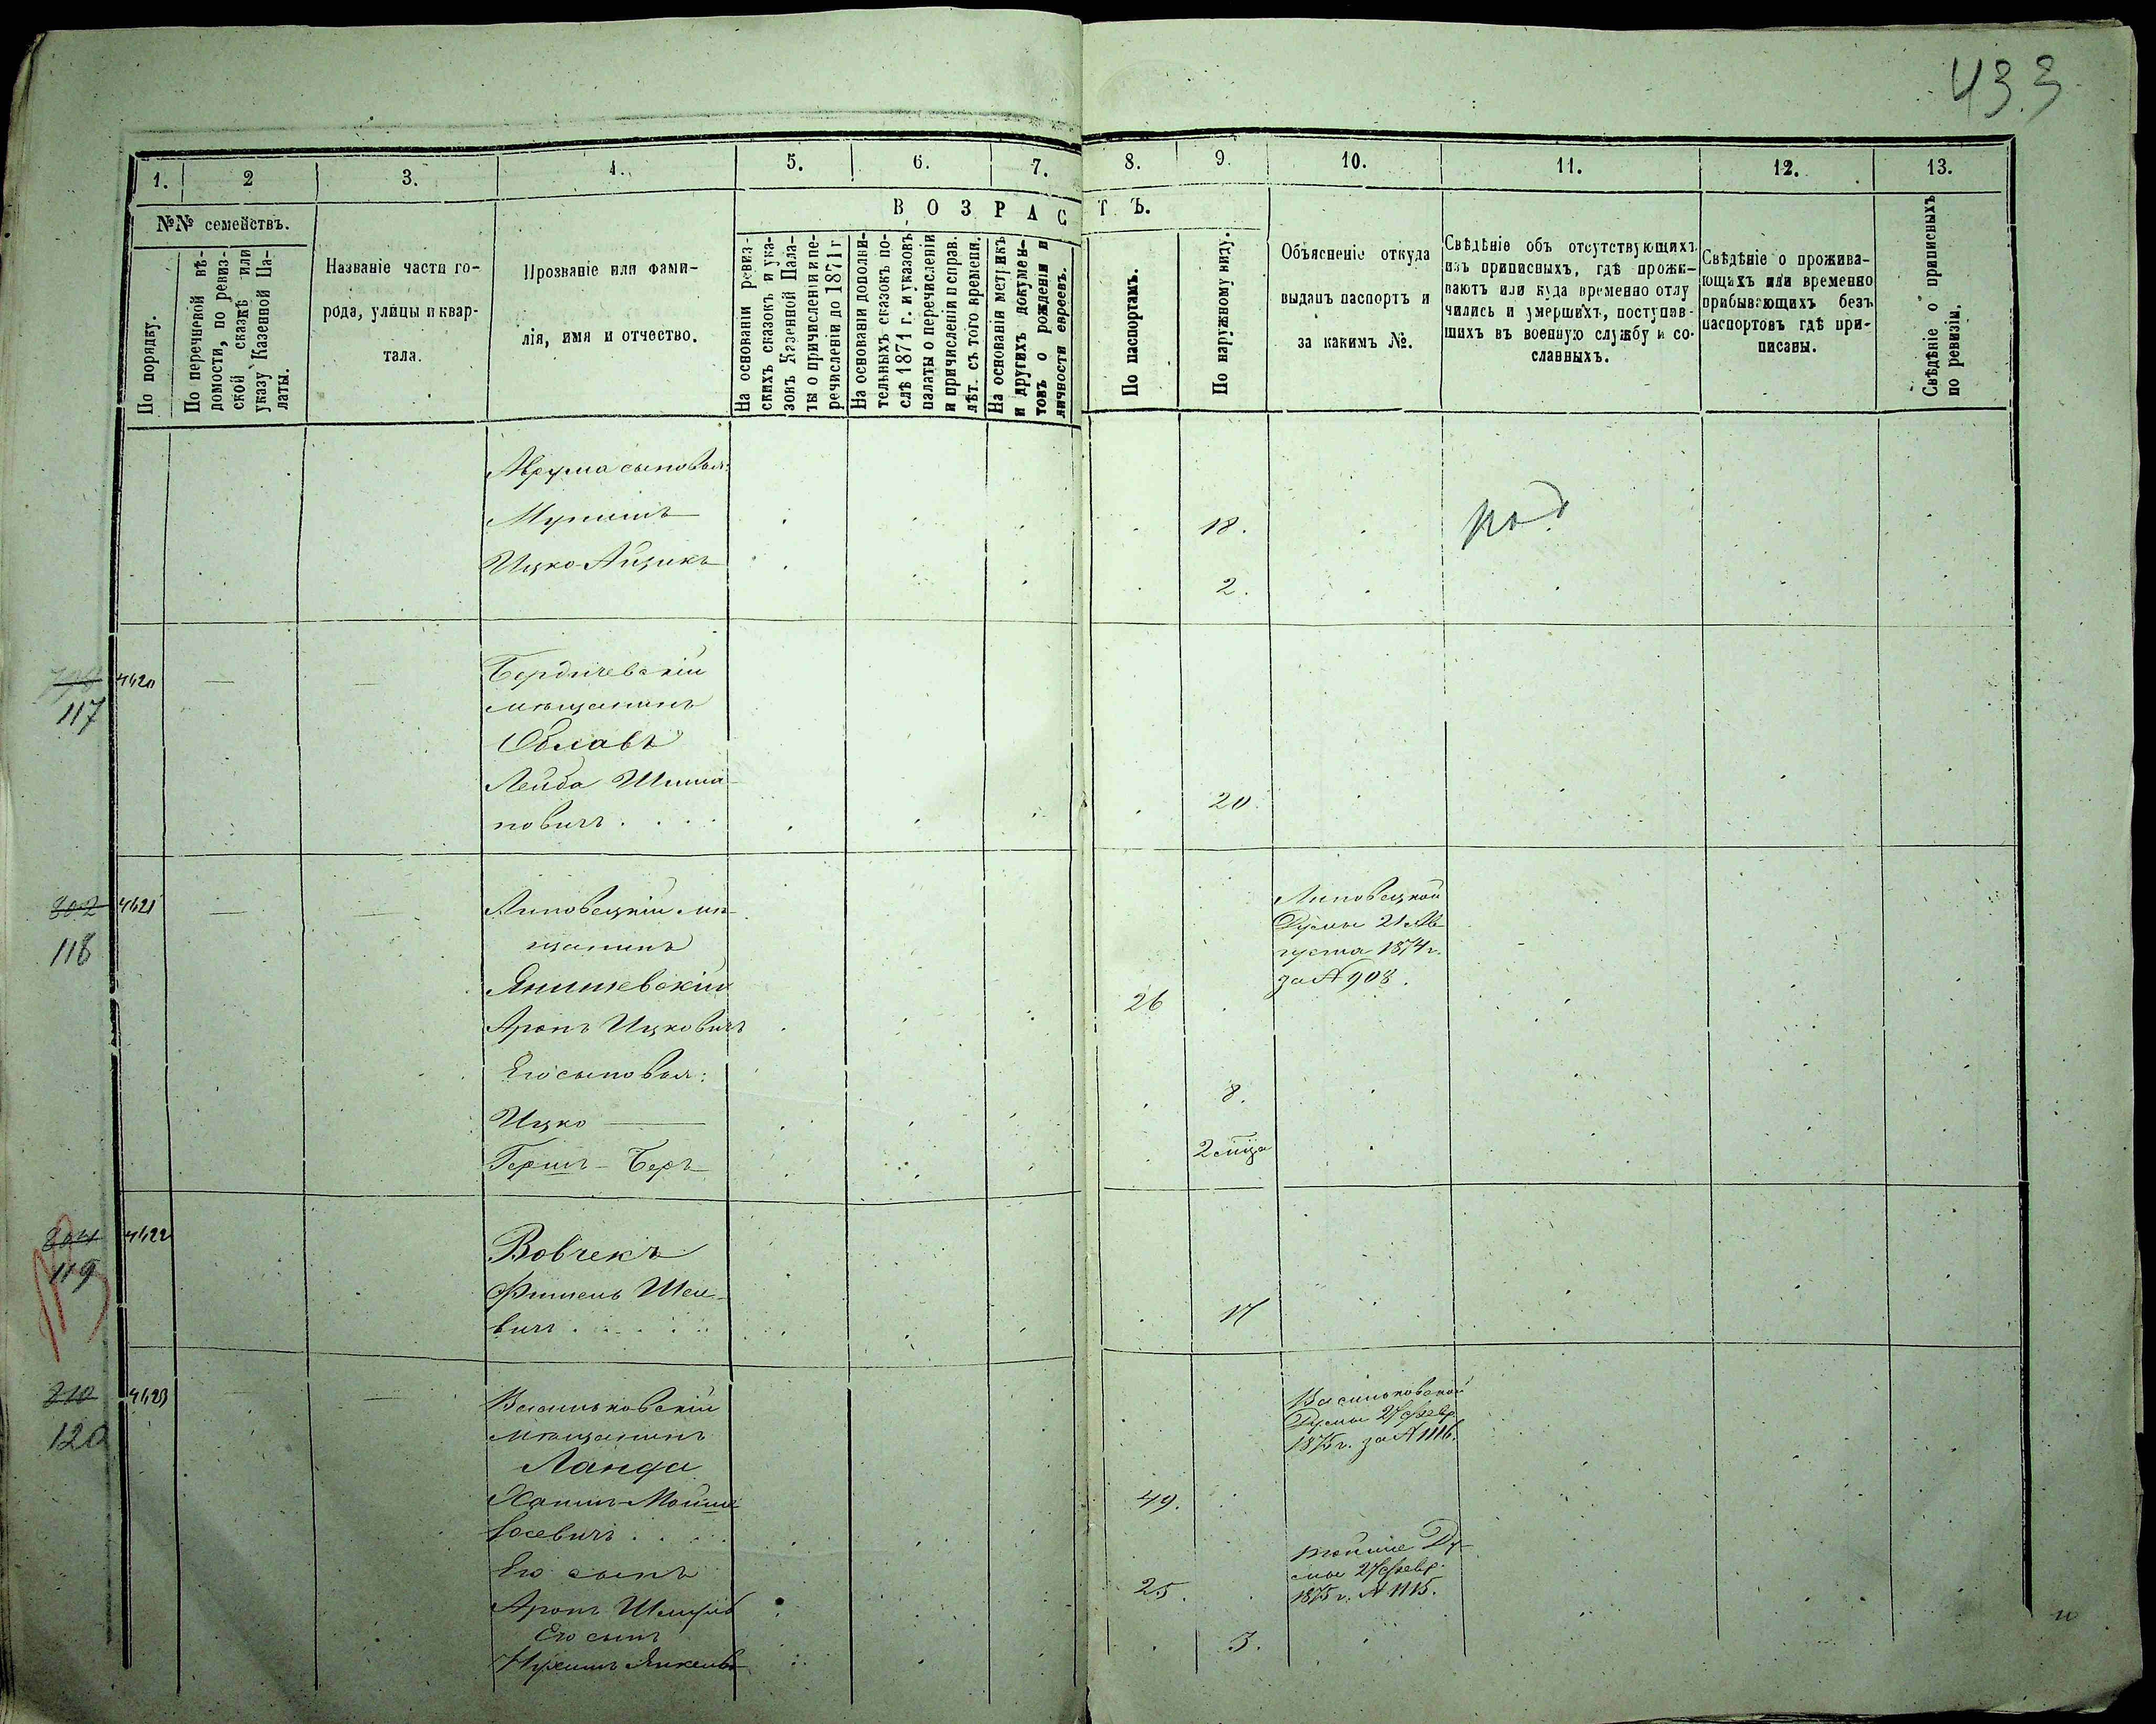 433
1. 2 3. 4. 5. 6. 7. 8. 9. 10. 11. 12. 13.
№№ семействъ.
По порядку.
По перечневой вѣ-
домости, по ревиз-
ской сказкѣ или
указу Казенной Па-
латы.
Названіе части го-
рода, улицы и квар-
тала.
Прозваніе или фами-
лія, имя и отчество.
ВОЗРАСТЪ.
На основаніи ревиз-
скихъ сказокъ и ука-
зовъ Казенной Пала-
ты о причисленіи и пе-
речисленіи до 1871 г
На основаніи дополни-
тельныхъ сказокъ по-
слѣ 1871 г. и указовъ
палаты о перечисленіи
и причисленіи и справ.
лѣт. съ того времени.
На основаніи метрикъ
и другихъ докумен-
товъ о рожденіи и
личности евреевъ.
По паспортамъ.
По наружному виду.
Объясненіе откуда
выданъ паспортъ и
за какимъ №.
Свѣдѣніе объ отсутствующихъ
изъ приписныхъ, гдѣ прожи-
ваютъ или куда временно отлу
чились и умершихъ, поступив-
шихъ въ военную службу и со-
сланныхъ.
Свѣдѣніе о прожива-
ющихъ или временно
прибывающихъ безъ
паспортовъ гдѣ при-
писаны.
Свѣдѣніе о приписныхъ
по ревизіи.
сыновья:
18.
Ицко Айзикъ
2.
4420
117
Бердичевскій
мѣщанинъ
Лейба Шима-
новичъ
20
802 4421
118
Липовецкій мѣ-
щанинъ
Янишевскій
Аронъ Ицковичъ
26
Липовецкой
Думы 21 Ав
густа 1874 г.
за № 908.
Его сыновья:
Ицко
8.
Гершъ-Беръ
2 мца
804 4422
119
Вовчекъ
Фишель Ше
вичъ
17
810 4423
120
Васильковскій
мѣщанинъ
Ланда
Хаимъ-Мойше
Іосевичъ
49.
Васильковской
Думы 27 февр.
1875 г. за № 1116.
Его сынъ
Аронъ
25.
Ду-
мы 27 февр.
1875 г. № 1115.
Его сынъ
3.